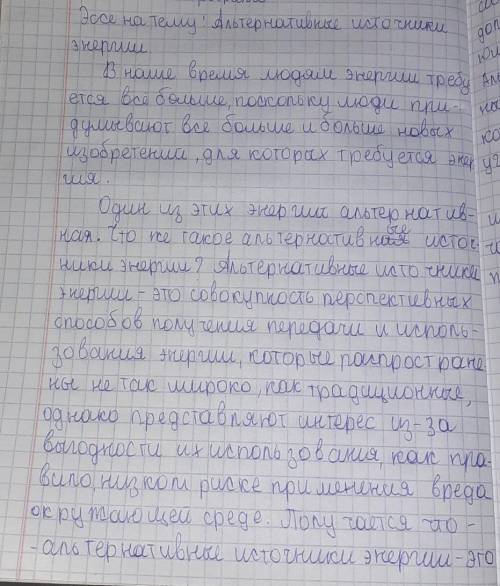 Эссе на тему: Альтернативные источники
энергии
В наше время людям энергии требу
ется все больше, поскольку люди при-
думывают все больше и больше новых
изобретении, для которах требуется энер
гия.
Один из этих энергии альтернатив-
ная. Что же такое альтернативные источ-
ники энергии? Альтернативные источники
энергии - это совокупность перспективных
способов получения передачи и исполь-
зования энергии, которые распростране
ны не так широко, как традиционные,
однако представляют интерес из-за
выгодности их использования, как пра-
вило, низком риске применения вреда
окружающей среде. Получается что -
-альтернативные источники энергии - это